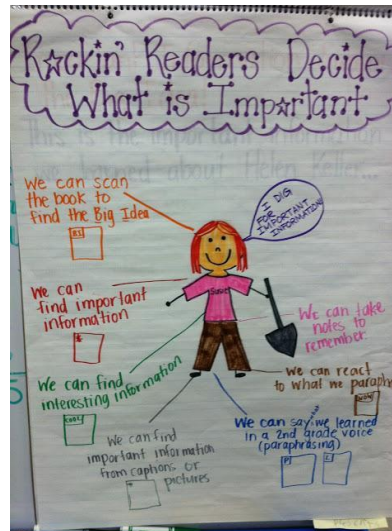 Rockin' Readers Decide
What is Important
This is the important information
we learned about Helen Keller...
I DIG
FOR
IMPORTANT
INFORMATION!
We can scan
the book to
find the Big Idea
BI
We can
find important
information
*
We can take
notes to
remember.
We can find
interesting information
COOL
We can react
to what we paraph
WOW
We can find
important information
from captions or
pictures
We can say we learned
in a 2nd grade voice
(paraphrasing)
P
L